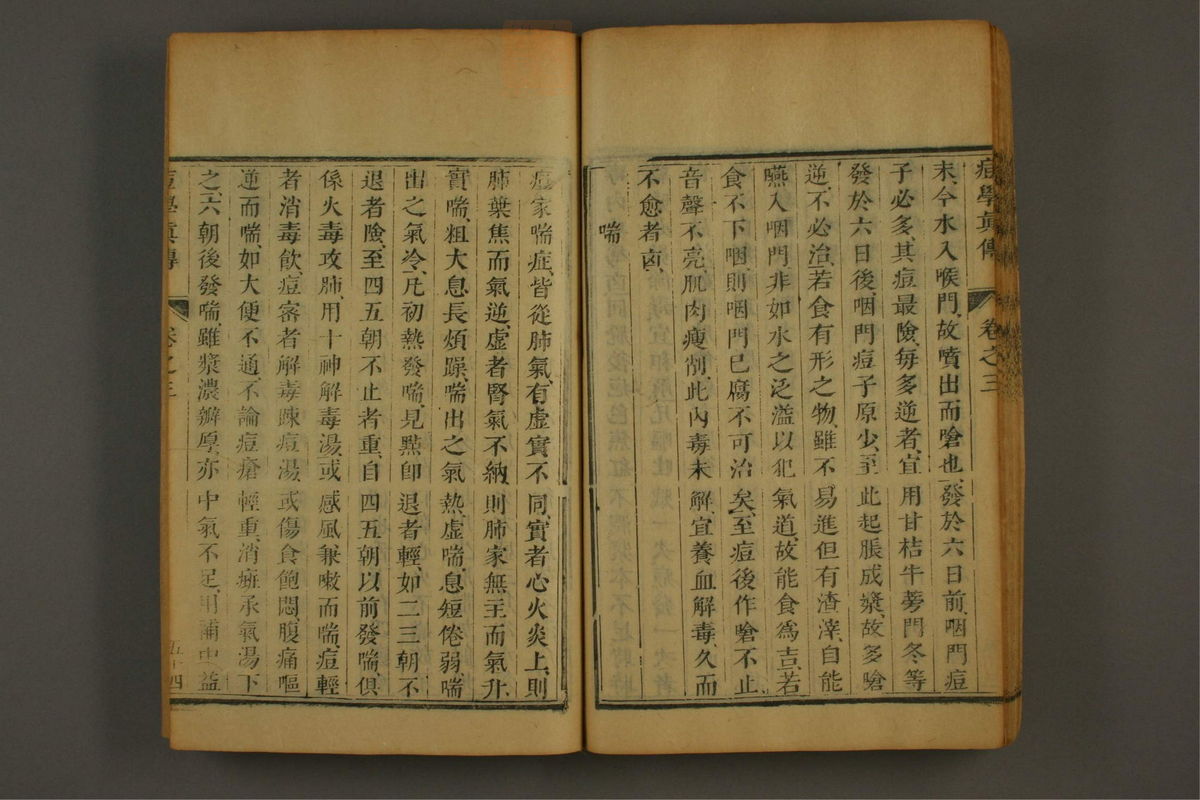 痘學眞傳 卷之三
末、今水入喉門、故噴出而嗆也、發於六日前、咽門痘
子必多、其痘最險、每多逆者、宜用甘桔牛蒡門冬等
發於六日後、咽門痘子原少、至此起脹成漿、故多嗆
逆、不必治、若食有形之物、雖不易進、但有渣滓、自能
嚥入咽門、非如水之泛溢以犯氣道、故能食爲吉、若
食不下咽、則咽門已腐不可治矣、至痘後作嗆不止
音聲不亮、肌肉瘦削、此內毒未解、宜養血解毒、久而
不愈者凶、
喘
痘家喘症、皆從肺氣、有虛實不同、實者心火炎上、則
肺葉焦而氣逆、虛者腎氣不納、則肺家無主而氣升、
實喘、粗大息長煩躁、喘出之氣熱、虛喘、息短倦弱、喘
出之氣冷、凡初熱發喘、見點卽退者輕、如二三朝不
退者險、至四五朝不止者重、自四五朝以前發喘、俱
係火毒攻肺、用十神解毒湯、或感風兼嗽而喘、痘輕
者消毒飲、痘密者解毒踈痘湯、或傷食飽悶、腹痛嘔
逆而喘、如大便不通、不論痘瘡輕重、消癍承氣湯下
之、六朝後發喘、雖漿濃瓣厚、亦中氣不足、用補中益
痘學眞傳 卷之三 五十四